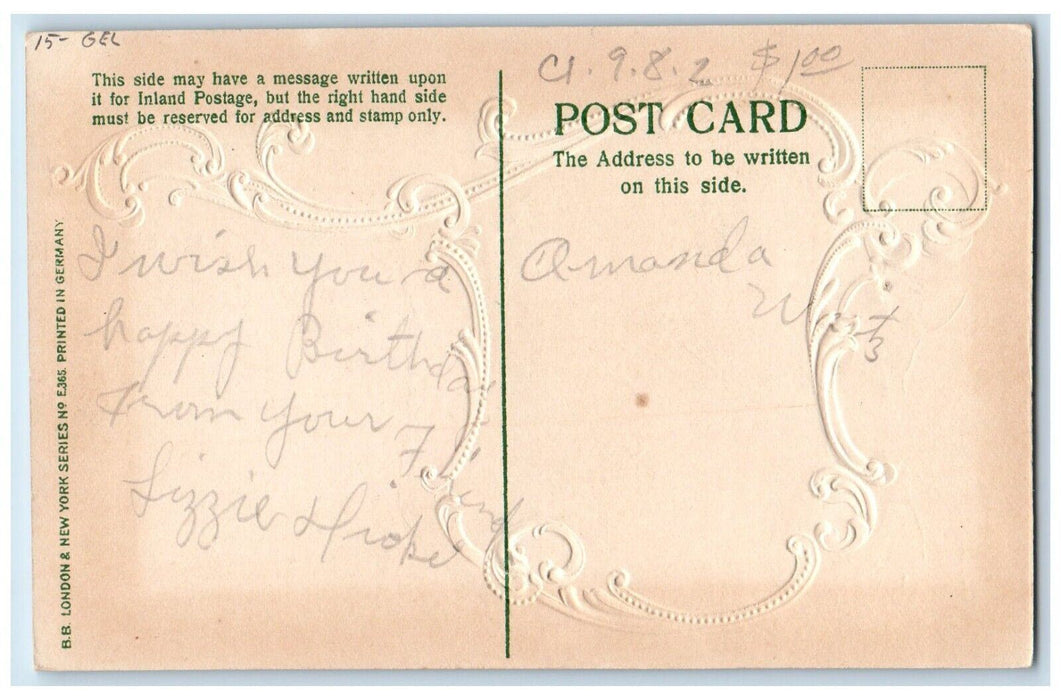 15- GEL
This side may have a message written upon
it for Inland Postage, but the right hand side
must be reserved for address and stamp only.
C1.9.8.2 $1.00
POST CARD
The Address to be written
on this side.
B.B. LONDON & NEW YORK SERIES Nº E.365. PRINTED IN GERMANY
I wish you a
happy Birthday
From your
Friend
Lizzie
Amanda